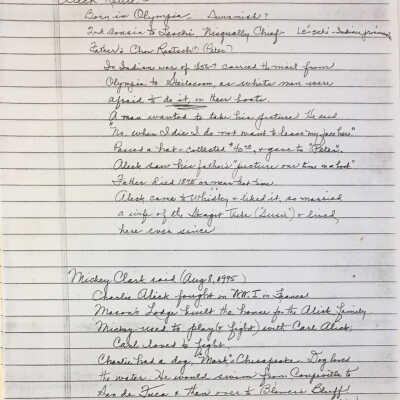 Born in Olympia - Suwamish?
2nd cousin to Leschi, Nisqually Chief - Leschi - Indian
Father's Chow (Peter)
In Indian war of 1856-7 carried the mail from
Olympia to Steilacoom, as white men were
afraid to do it, in their boats.
A man wanted to take his picture. He said
"No, when I die I do not want to leave my face here."
Passed a hat - collected $40.00, & gave to "Peter".
Aleck saw his father's "picture one time in a book"
Father died 1898 or near that time.
Aleck came to Whidbey & liked it, so married
a wife of the Skagit Tribe (Susie) & lived
here ever since
Mickey Clark said (Aug 8, 1995)
Charlie Alick fought in WW. I in France
Mason's Lodge built the house for the Alick family
Mickey used to play (& fight) with Carl Alick.
Carl loved to fight.
Charlie had a dog, "Mack" Chesapeake - Dog loved
the water. He would swim from Coupeville to
San de Fuca & then over to Blowers Bluff